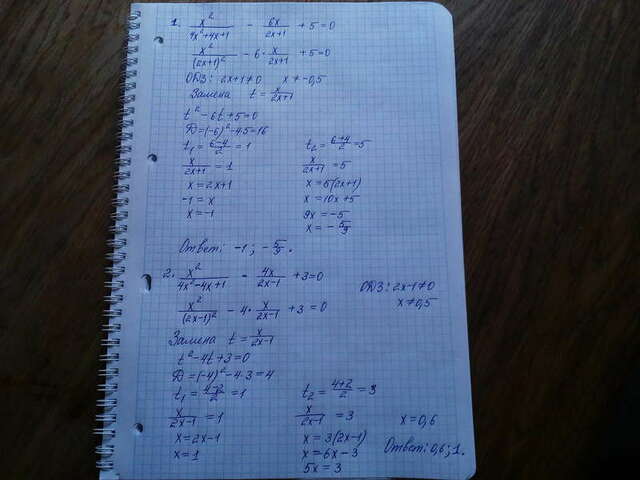 1. x²/(4x²+4x+1) - 6x/(2x+1) + 5 = 0
x²/(2x+1)² - 6·x/(2x+1) + 5 = 0
ОДЗ: 2x+1≠0 x≠-0,5
Замена t = x/(2x+1)
t²-6t+5=0
Д=(-6)²-4·5=16
t₁=(6-4)/2=1 t₂=(6+4)/2=5
x/(2x+1)=1 x/(2x+1)=5
x=2x+1 x=5(2x+1)
-1=x x=10x+5
x=-1 9x=-5
x=-5/9
Ответ: -1; -5/9.
2. x²/(4x²-4x+1) - 4x/(2x-1) + 3=0 ОДЗ: 2x-1≠0
x²/(2x-1)² - 4·x/(2x-1) + 3 = 0 x≠0,5
Замена t = x/(2x-1)
t²-4t+3=0
Д=(-4)²-4·3=4
t₁=(4-2)/2=1 t₂=(4+2)/2=3
x/(2x-1)=1 x/(2x-1)=3 x=0,6
x=2x-1 x=3(2x-1) Ответ: 0,6; 1.
x=1 x=6x-3
5x=3